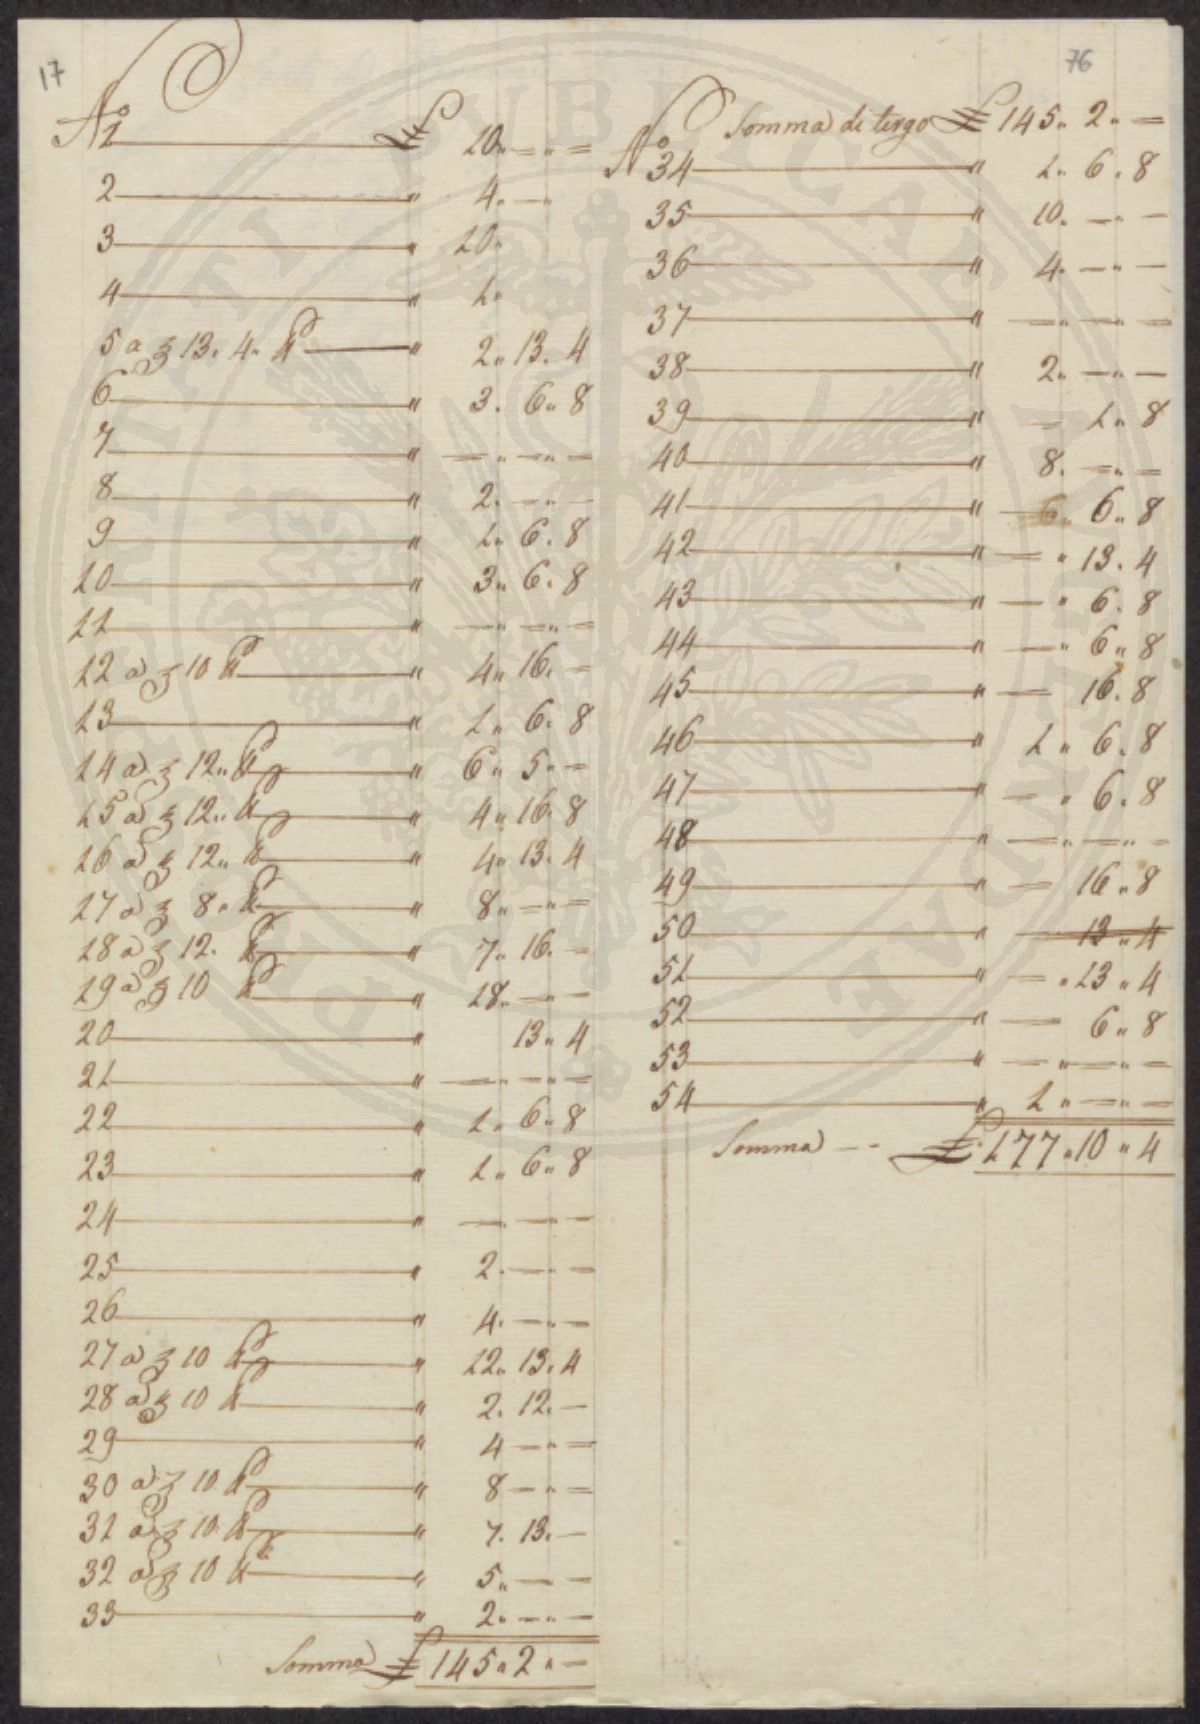 17
No 1 ₤ 10 „ — „ =
2 „ 4 „ — „
3 „ 10 „
4 „ 1 „
5 a 13. 4 „ 2 „ 13. 4
6 „ 3. 6 „ 8
7 „ — „ — „ —
8 „ 2 „ — „ —
9 „ 1 „ 6. 8
10 „ 3 „ 6. 8
11 „ — „ — „ =
12 a 10 „ 4 „ 16. =
13 „ 1 „ 6. 8
14 a 12 „ 6 „ 5 „ =
15 a 12 „ 4 „ 16. 8
16 a 12 „ 4 „ 13. 4
17 a 8 „ 8 „ — „ =
18 a 12. „ 7 „ 16. —
19 a 10 „ 18. — „ —
20 „ 13 „ 4
21 „ — „ — „ =
22 „ 1. 6 „ 8
23 „ 1. 6 „ 8
24 „ — „ — „ —
25 „ 2. — „ —
26 „ 4. — „ —
27 a 10 „ 12 „ 13. 4
28 a 10 „ 2. 12. —
29 „ 4 — „ =
30 a 10 „ 8 — „ =
31 a 10 „ 7. 13. —
32 a 10 „ 5 „ — „ —
33 „ 2 „ — „ —
Somma ₤ 145 „ 2 „ —
76
Somma di tergo ₤ 145 „ 2 „ =
No 34 „ 1 „ 6. 8
35 „ 10. — „ —
36 „ 4. — „ —
37 „ — „ — „ =
38 „ 2 „ — „ —
39 „ = 1 „ 8
40 „ 8. = „ =
41 „ — 6 „ 8
42 „ — „ 13. 4
43 „ — „ 6. 8
44 „ — „ 6 „ 8
45 „ — 16. 8
46 „ 1 „ 6. 8
47 „ — „ 6. 8
48 „ — „ — „ =
49 „ — 16 „ 8
50 „ — 13 „ 4
51 „ — „ 13 „ 4
52 „ — 6 „ 8
53 „ — „ — „ =
54 „ 1 „ — „ =
Somma -- ₤ 177 „ 10 „ 4